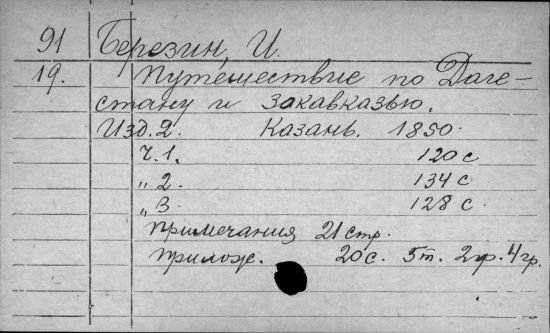 91 Березин, И.
19. Путешествие по Даге-
стану и Закавказью.
Изд. 2. Казань. 1850.
Ч. 1. 120 с
„ 2. 134 с
„ 3. 128 с.
примечания 21 стр.
прилож. 20 с. 5 т. 2 гр. 4 гр.